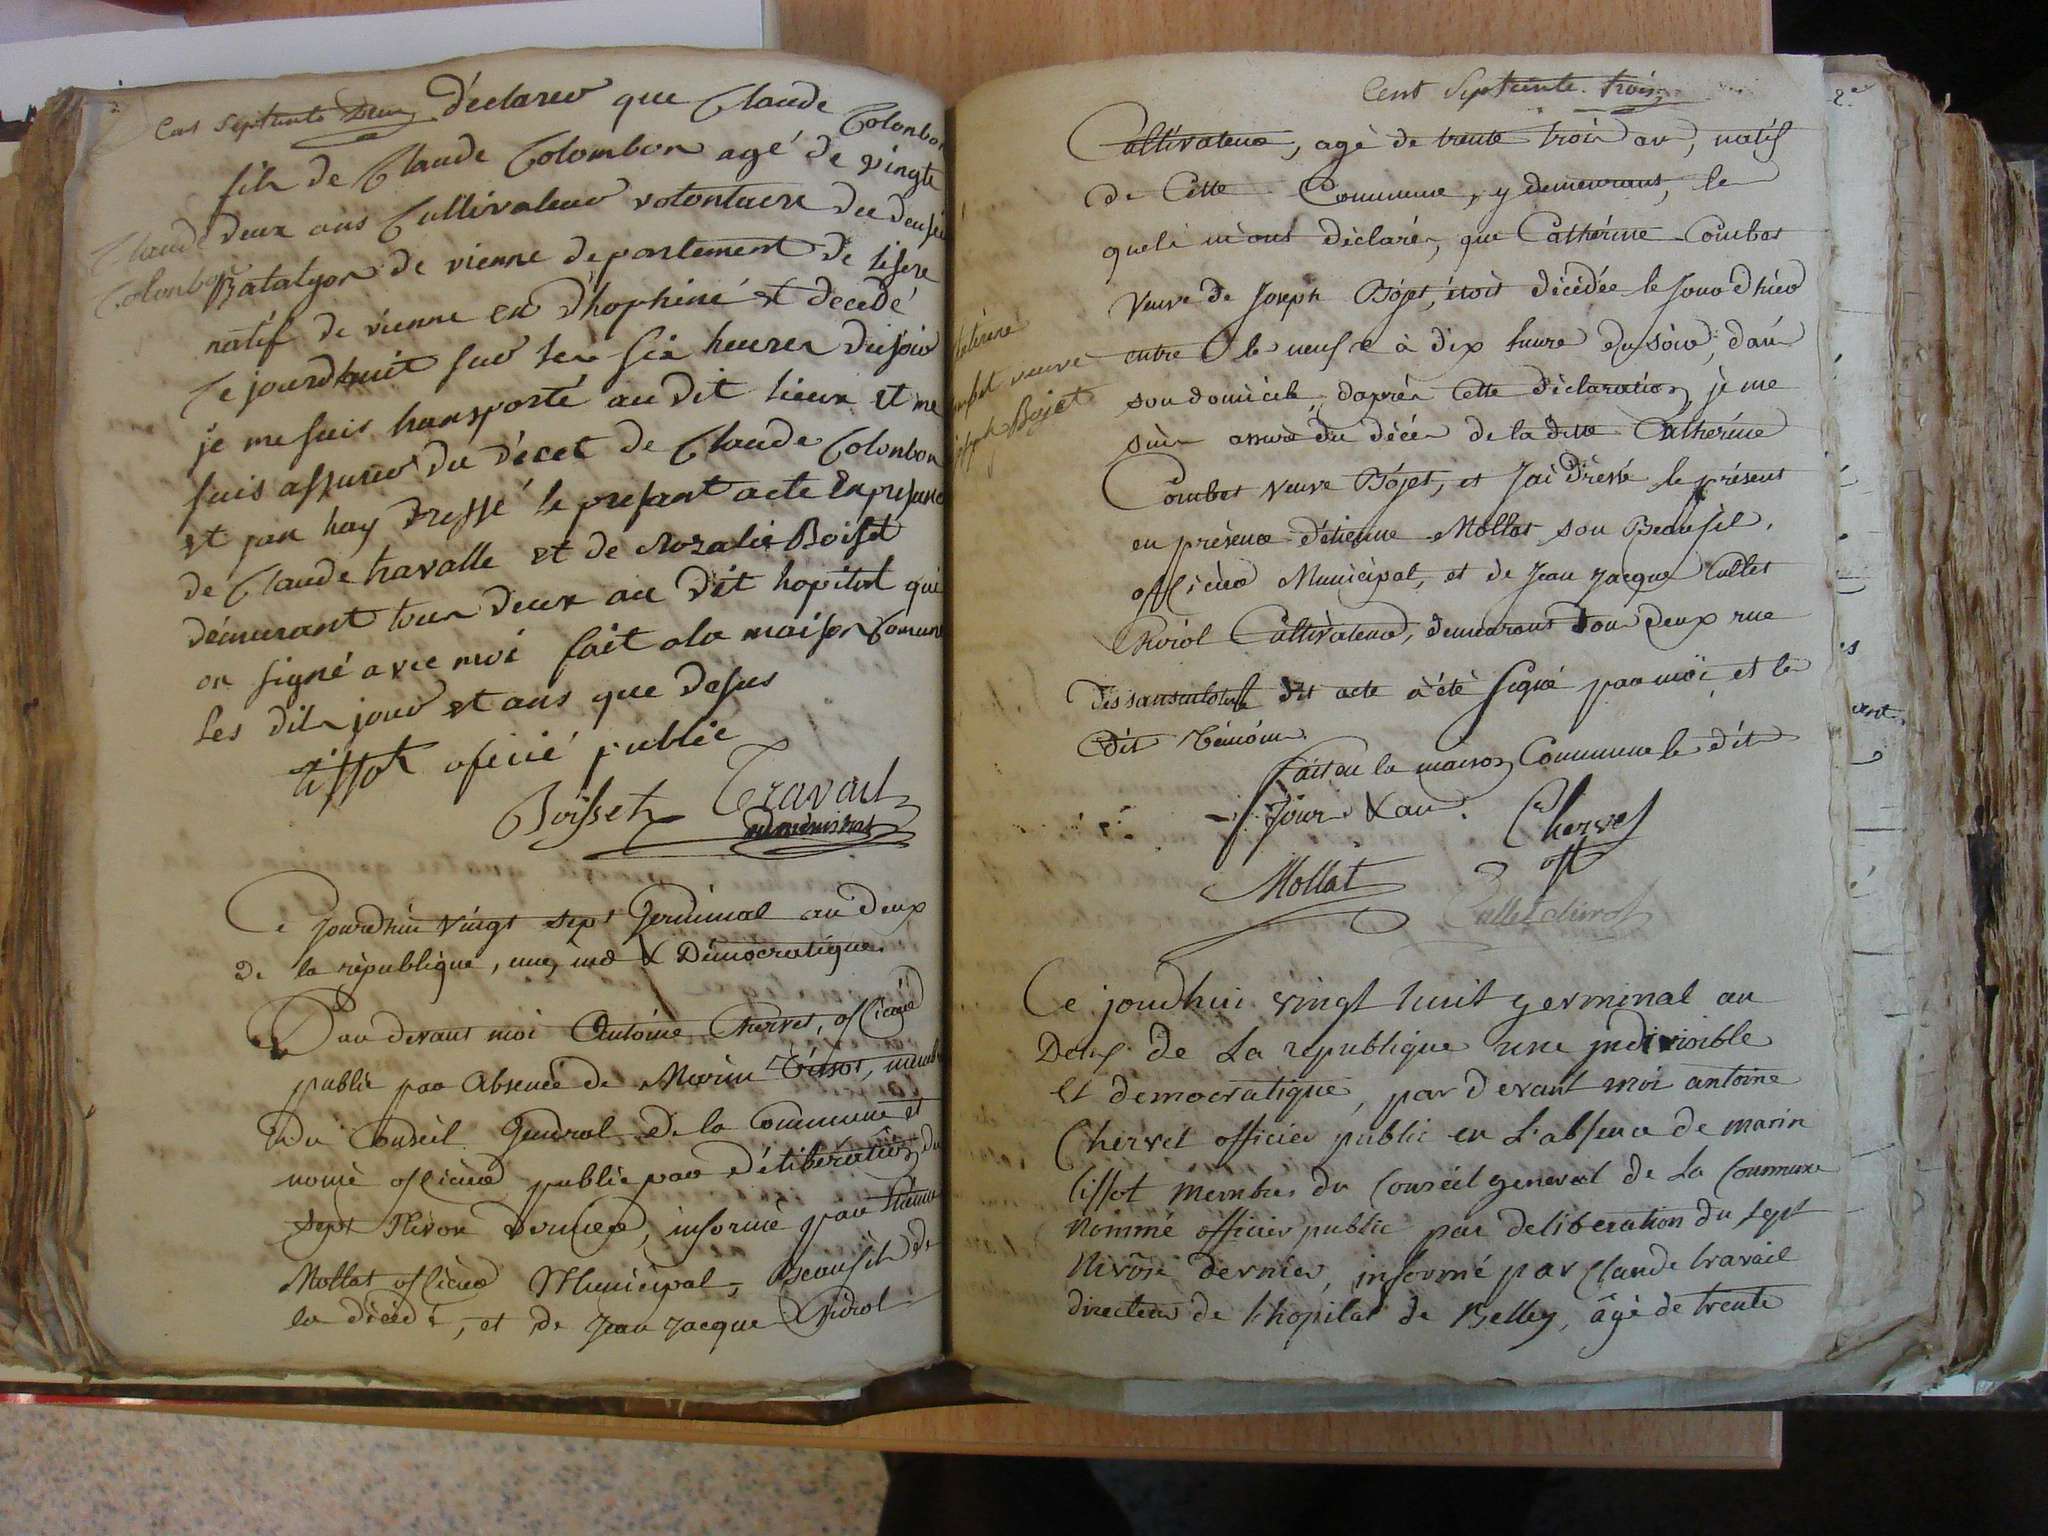 Cent septente deux
déclarer que Claude Colonbon
fils de Claude Colombon agé de vingte
deux ans Cullivateur volontaire du deusie
Claude
Colonbon
Batalyon de vienne departement de lisere
natif de vienne en dhophiné et decedé
Ce jourdhuit sur les six heures du soir
je me suis transporté au dit lieux et me
suis assurer du décet de Claude Colonbon
et jan hay dressé le presant acte En presance
de Claude travalle et de Rozalie Boisset
démurant tous deux au dit hopital qui
on signé avec moi fait ala maison Comune
les dits jour et ans que desus
tissot oficié public
Boisset Travail
Ce Jourdhui vingt sept Germinal an deux
de la république, une, ind & Démocratique.
Par devant moi Antoine Chervet, officier
public par Absence de Marin Tissot, membre
du Conseil Général de la Commune et
nomé officier public par déliberation du
sept Nivose dernier, informé par Etienne
Mollat officier Municipal, Beaufils de
la décédé, et de Jean Jacque Chirol
Cent Septente trois
Cultivateur, agé de trente trois an, natif
de Cette Commune, y demeurant, les
quels m'ont déclarés, que Cathérine Combet
Veuve de Joseph Bójet, étoit décédée le jour dhier
veuve
Joseph Bojet
entre le neuf e à dix heure du soir, dans
son domicile, daprès Cette déclaration je me
suis assuré du décès de la dite Cathérine
Combet veuve Bójet, et J'ai dressé le présent
en présence d'étienne Mollat son Beaufil,
officier Municipal, et de Jean Jacque Cullet
Chirol Cultivateur, demeurans tous deux rue
des sansculotes dit acte a été signé par moi, et les
dit Témoins.
Fait en la maison Commune le dit
Jour & an. Chervet
off
Mollat
Cullet chirol
Ce jourdhui vingt huit germinal an
Deux de La republique une indivisible
Et democratique, par devant moi antoine
Chervet officier public en L'absence de marin
tissot membres du Conseil general de La Commune
Nommé officier public par deliberation du sept
Nivôse dernier, informé par Claude travail
directeur de l'hopital de Belley, âgé de trente